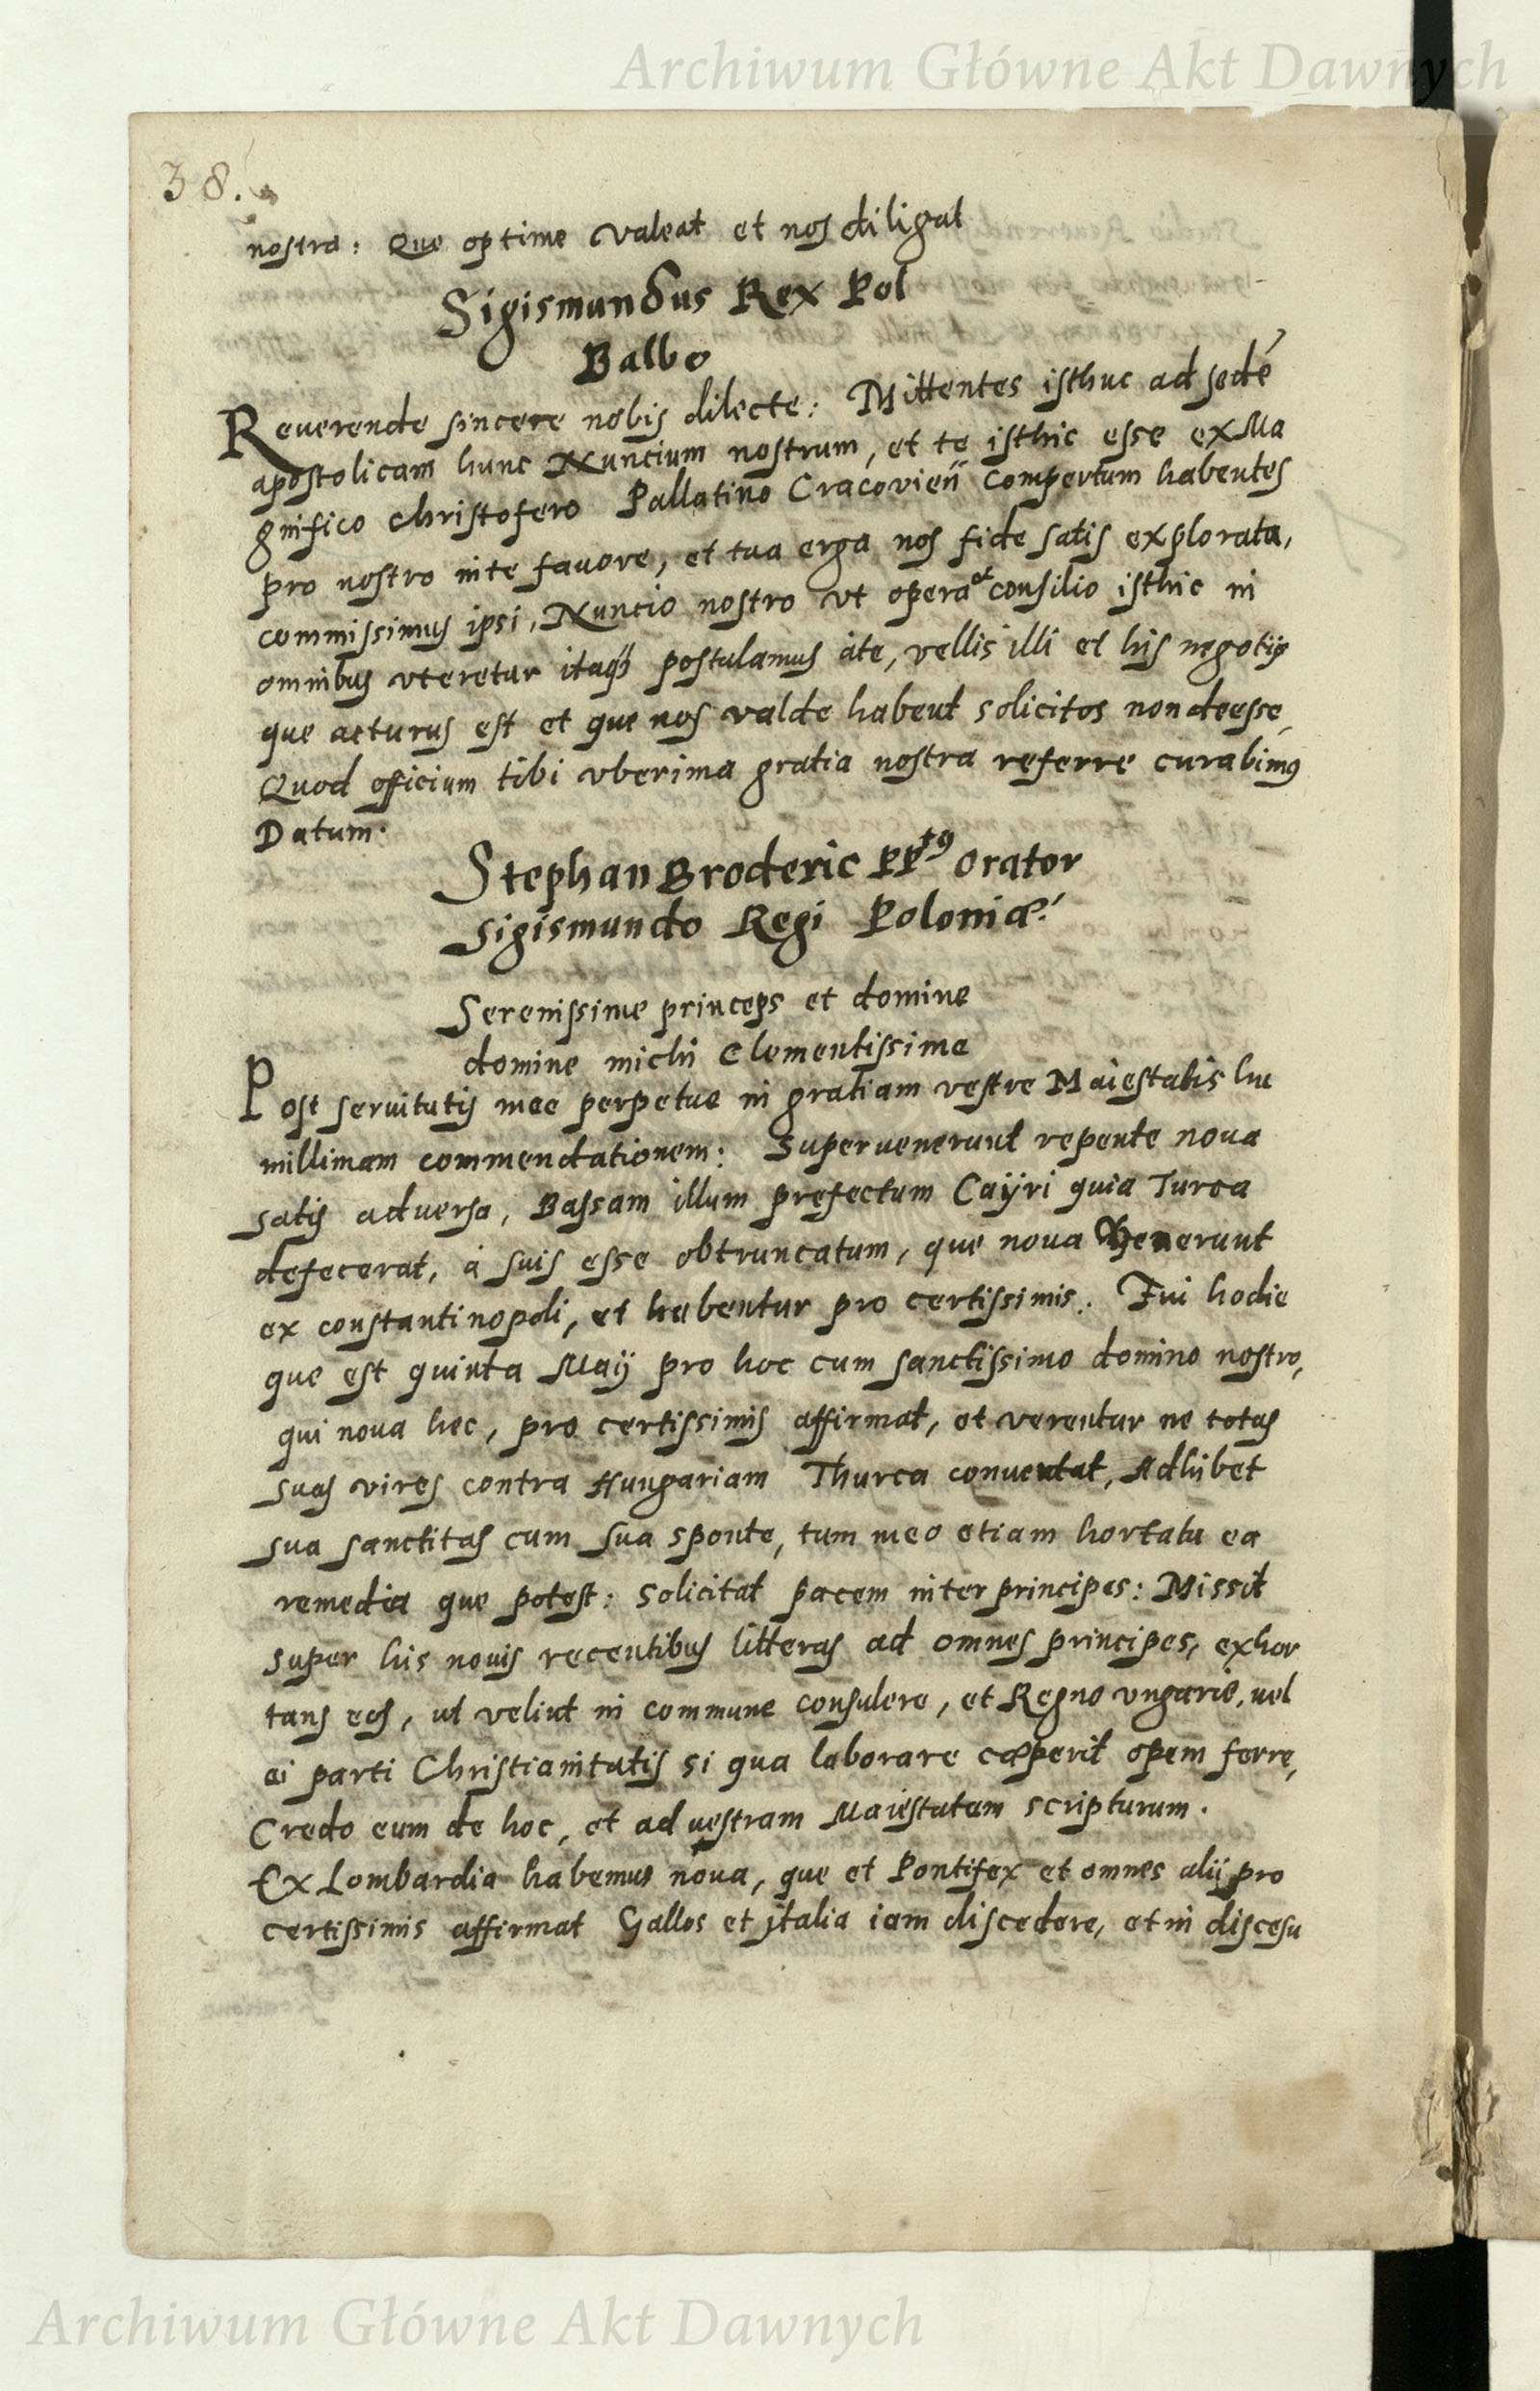 Archiwum Główne Akt Dawnych
38.
nostra: Que optime valeat et nos diligat
Sigismundus Rex Pol
Balbo
Reuerende sincere nobis dilecte: Mittentes isthuc ad sedē
apostolicam hunc Nuncium nostrum, et te isthic esse ex Ma
gnifico Christofero Pallatino Cracovieñ compertum habentes
pro nostro in te fauore, et tua erga nos fide satis explorata,
commissimus ipsi, Nuncio nostro vt opera et consilio isthic in
omnibus vteretur itaqȝ postulamus àte, vellis illi et his negotijs
que acturus est et que nos valde habent solicitos non deesse,
Quod officium tibi vberima gratia nostra referre curabimꝰ
Datum.
Stephan Broderic PPtꝰ Orator
Sigismundo Regi Poloniæ:
Serenissime princeps et domine
domine michi Clementissime
Post seruitutis mee perpetue in gratiam vestre Maiestatis hu
millimam commendationem: Superuenerunt repente noua
satis aduersa, Bassam illum prefectum Cayri quia Turca
defecerat, à suis esse obtruncatum, que noua venerunt
ex constantinopoli, et habentur pro certissimis. Fui hodie
que est quinta Maij pro hoc cum sanctissimo domino nostro,
qui noua hec, pro certissimis affirmat, et verentur ne totas
suas vires contra Hungariam Thurca conuertat, Adhibet
sua sanctitas cum sua sponte, tum meo etiam hortatu ea
remedia que potest: Solicitat pacem inter principes: Missit
super his nouis recentibus litteras ad omnes principes, exhor
tans eos, ut velint in commune consulere, et Regno vngarie, uel
ei parti Christianitatis si qua laborare cæperit opem ferre,
Credo eum de hoc, et ad uestram Maiestatem scripturum.
Ex Lombardia habemus noua, que et Pontifex et omnes alij pro
certissimis affirmat Gallos et italia iam discedere, et in discesu
Archiwum Główne Akt Dawnych